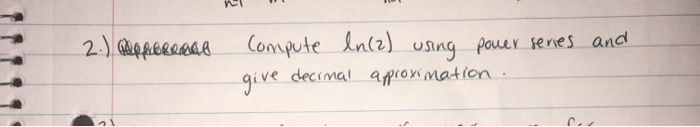 2.) Compute ln(2) using power series and
give decimal approximation.